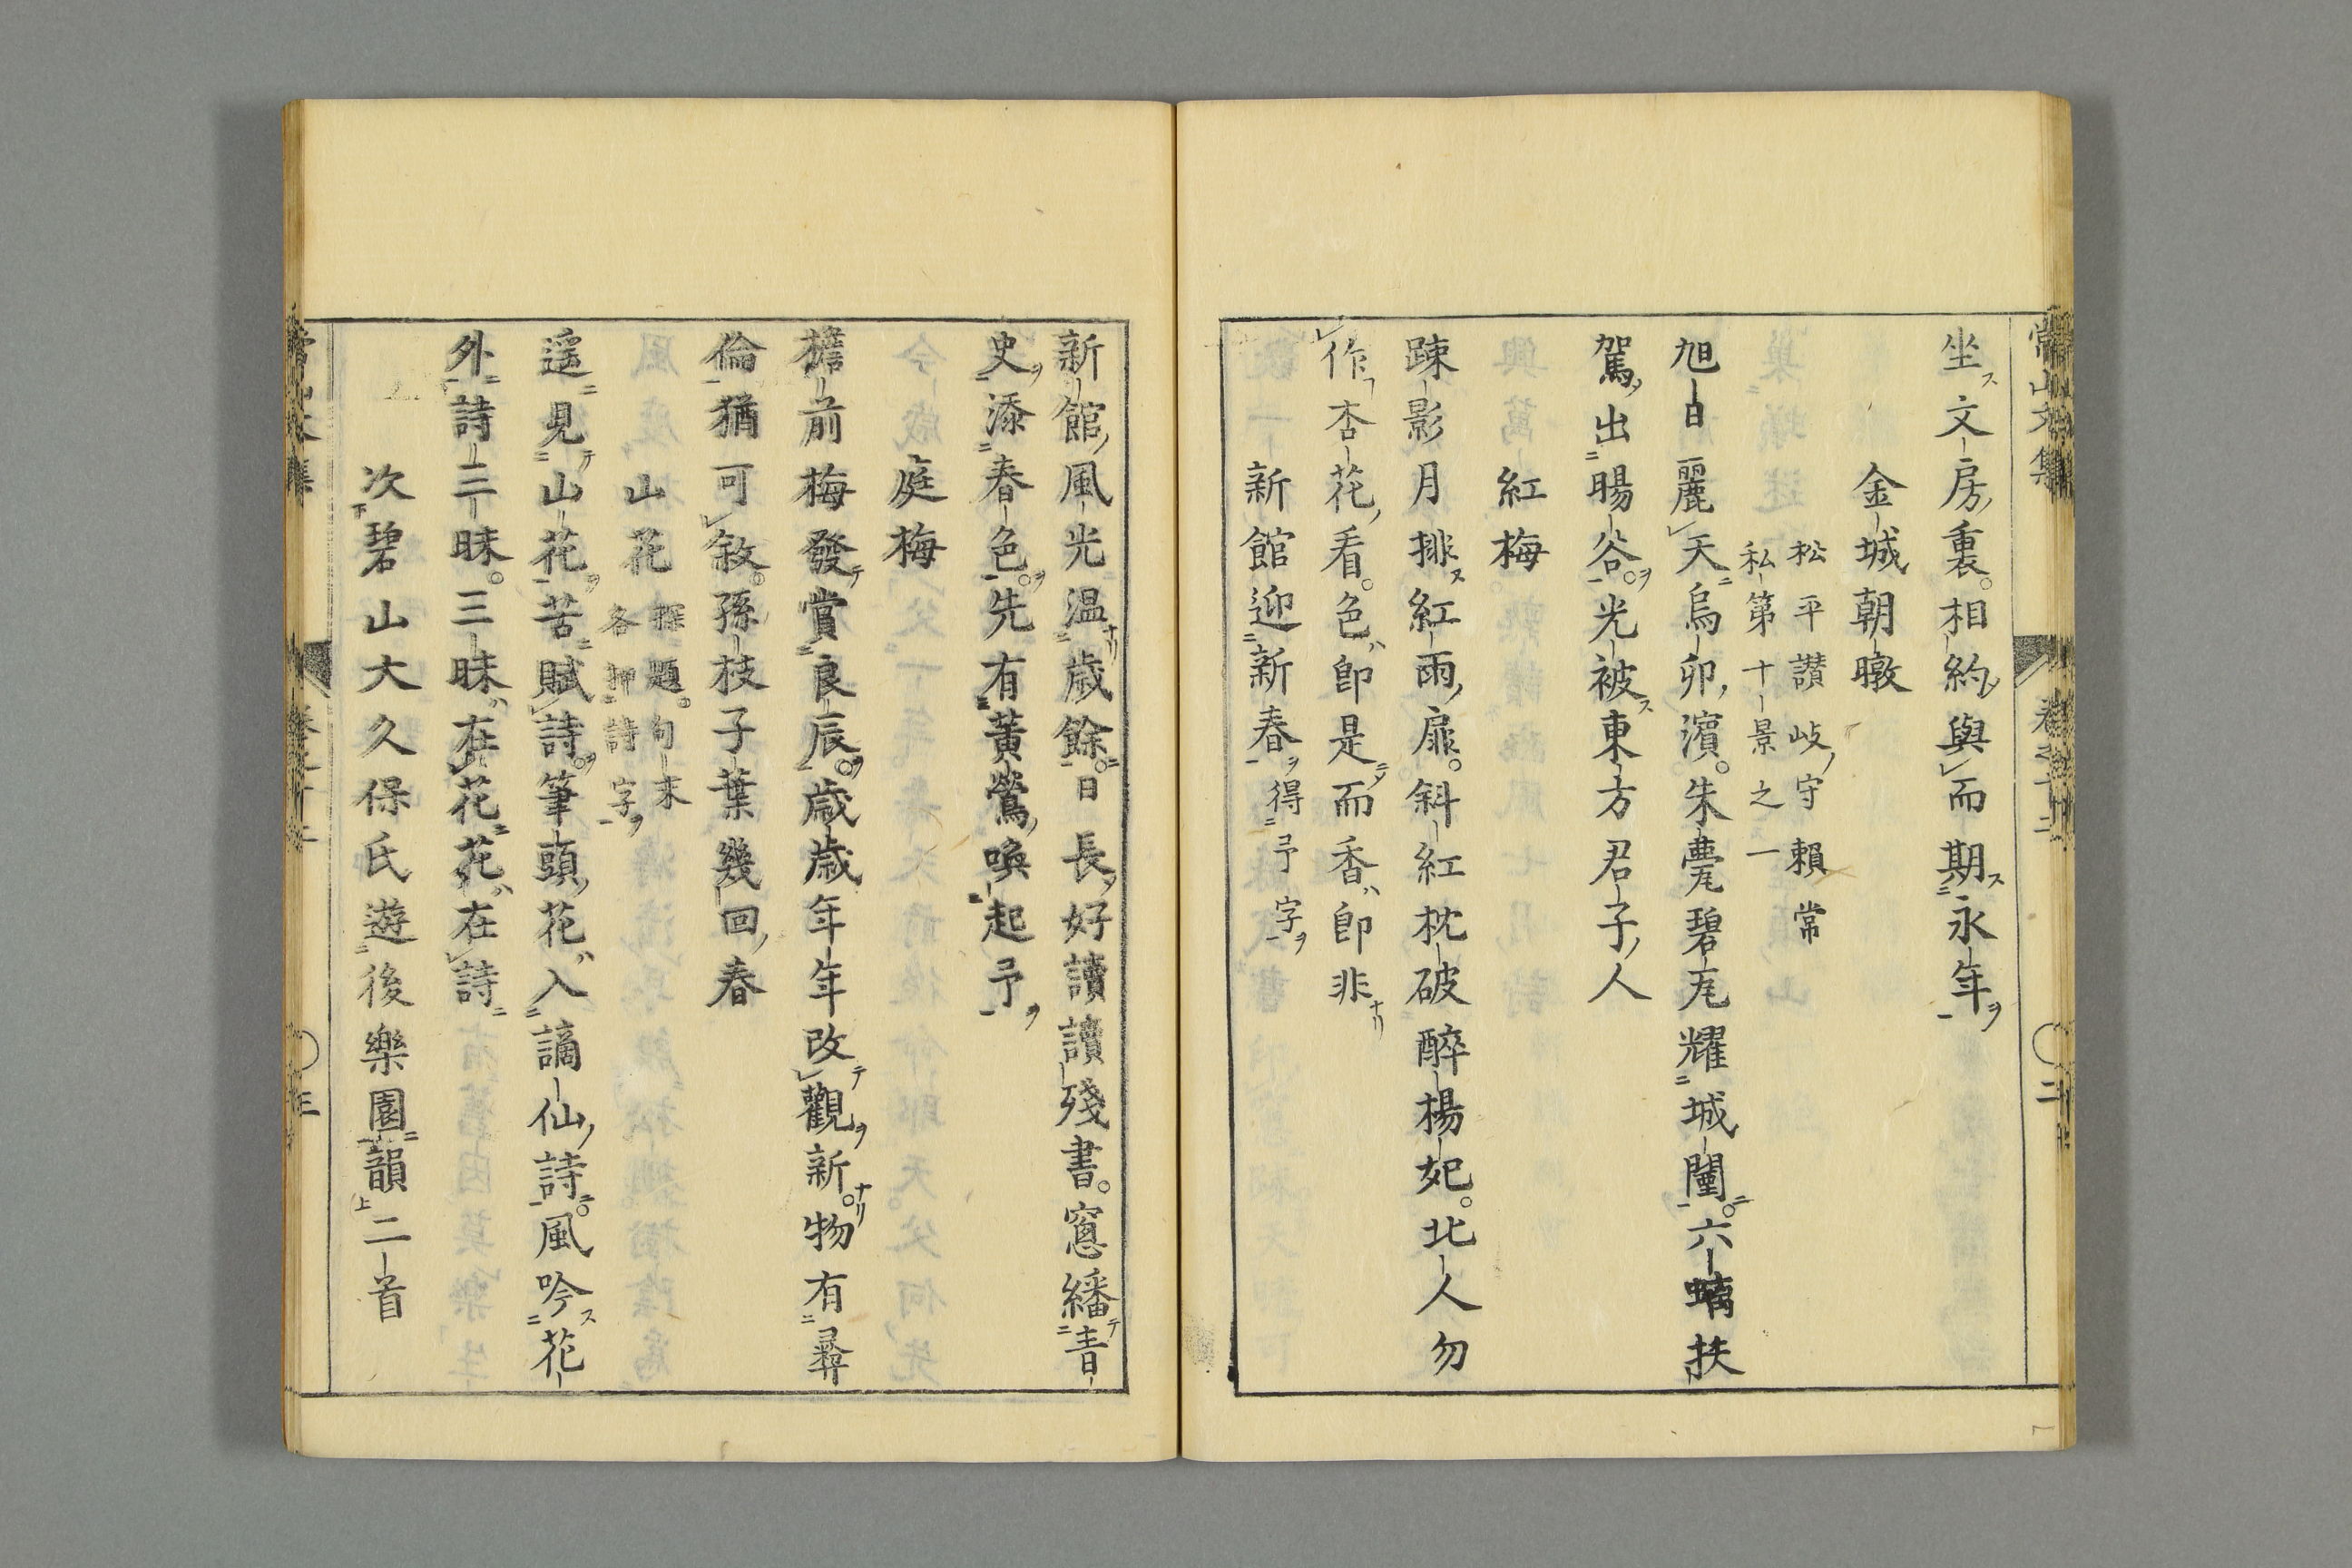 常山文集 卷之十二 〇二
坐文房裏。相約與而期永年
金城朝暾
松平讃岐守賴常
私第十景之一
旭日麗天烏卯濱。朱甍碧瓦耀城闉。六螭扶
駕出暘谷。光被東方君子人
紅梅
踈影月排紅雨扉。斜紅枕破醉楊妃。北人勿
作杏花看。色卽是而香卽非
新館迎新春得予字
新館風光温歲餘。日長好讀讀殘書。窓繙靑
史添春色。先有黃鶯喚起予
庭梅
檐前梅發賞良辰。歲歲年年改觀新。物有彞
倫猶可敘。孫枝子葉幾回春
山花
探題。句末
各押詩字
遥見山花苦賦詩。筆頭花入謫仙詩。風吟花
外詩三昧。三昧在花花在詩
次碧山大久保氏遊後樂園韻二首
〇三